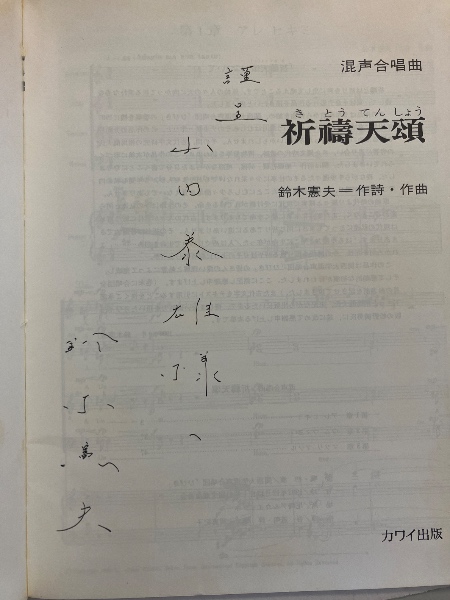 混声合唱曲
きとうてんしょう
祈禱天頌
鈴木憲夫＝作詩・作曲
謹呈
小田泰雄様
鈴木憲夫
カワイ出版